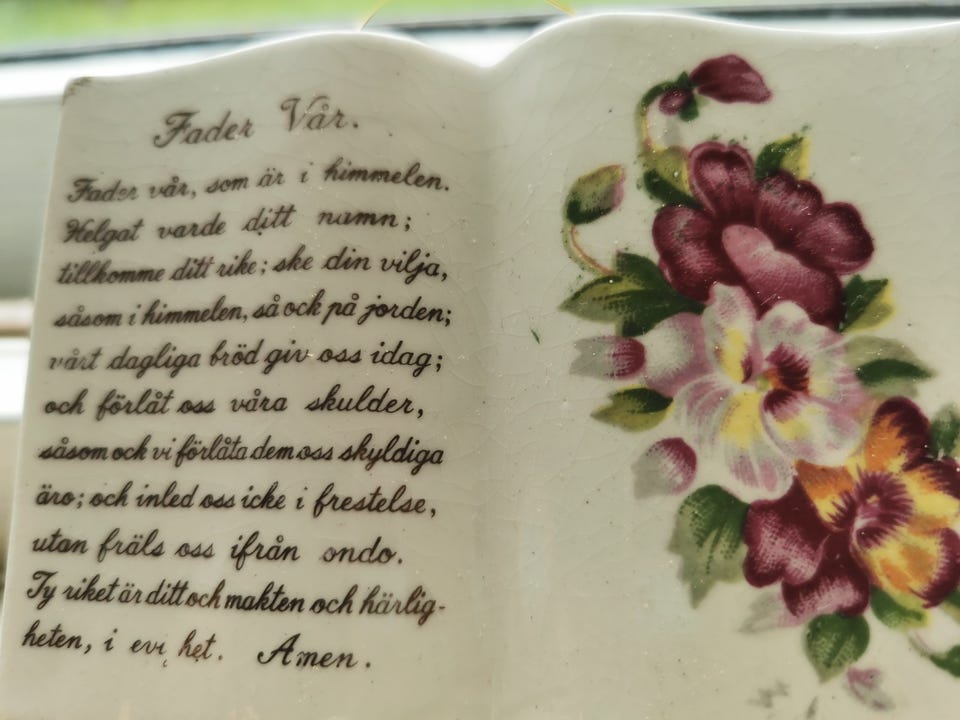 Fader Vår.
Fader vår, som är i himmelen.
Helgat varde ditt namn;
tillkomme ditt rike; ske din vilja,
såsom i himmelen, så ock på jorden;
vårt dagliga bröd giv oss idag;
och förlåt oss våra skulder,
såsom ock vi förlåta dem oss skyldiga
äro; och inled oss icke i frestelse,
utan fräls oss ifrån ondo.
Ty riket är ditt och makten och härlig-
heten, i evighet. Amen.